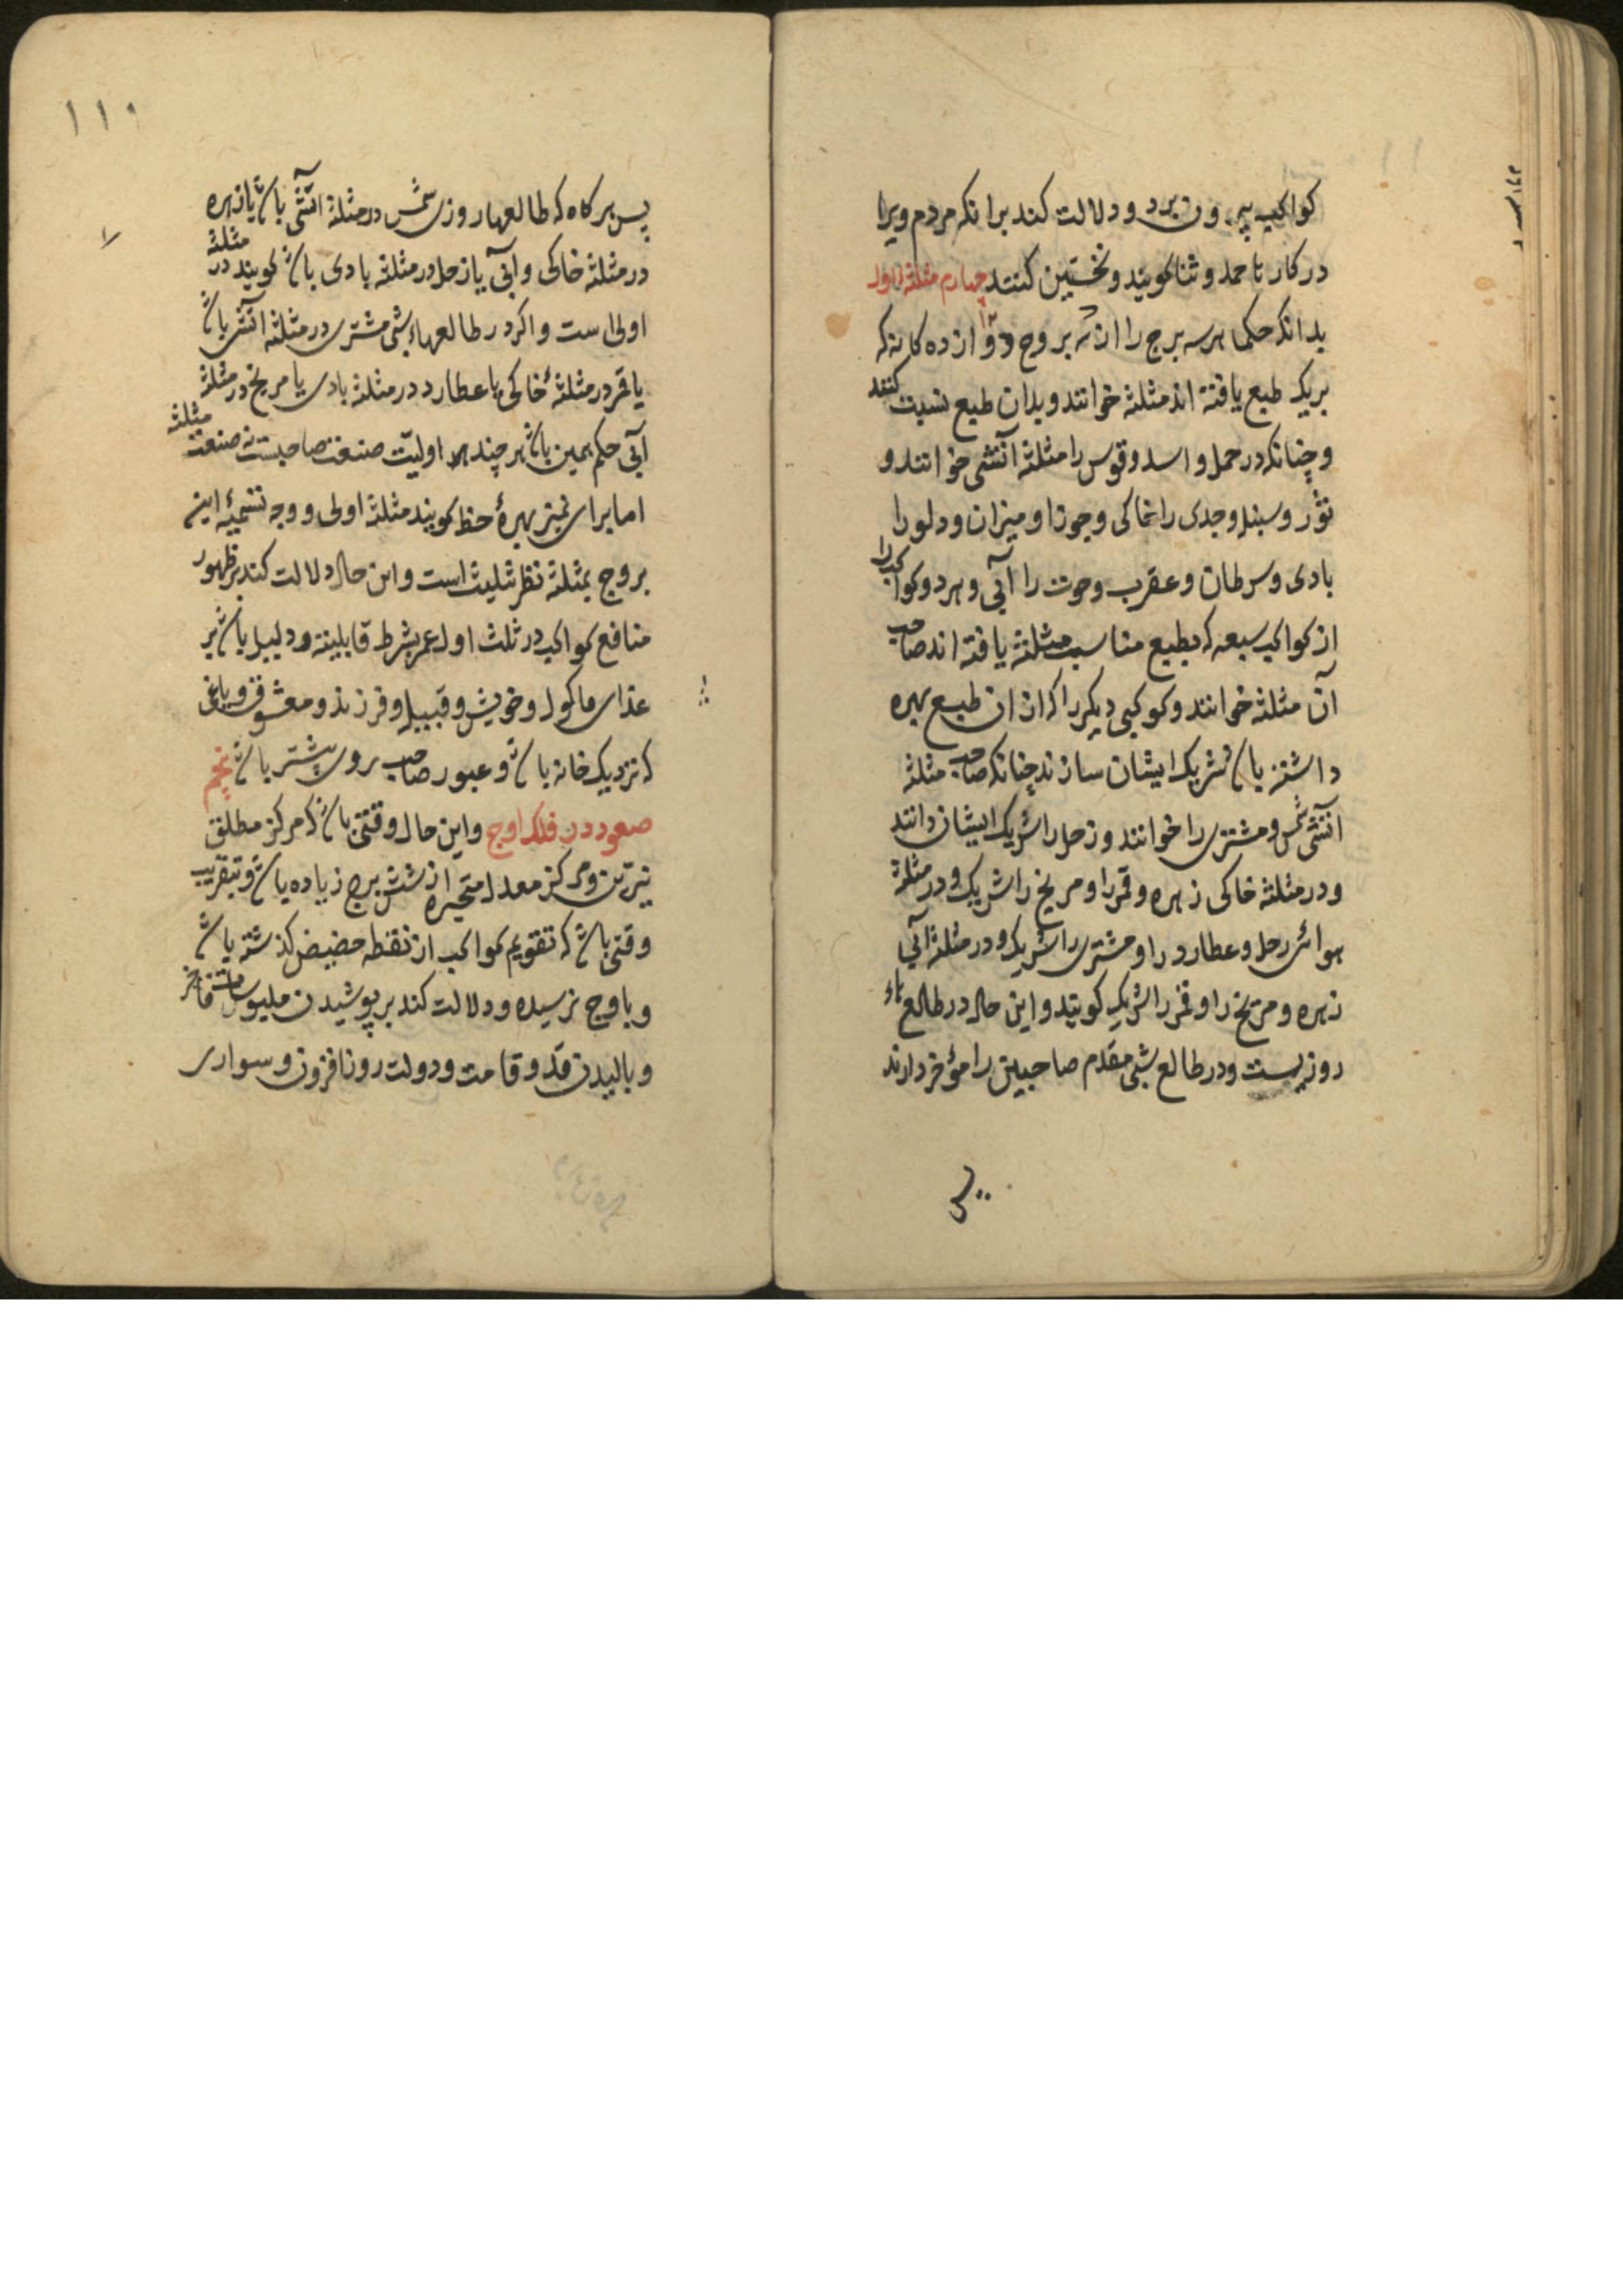 کواکب بیرون برد و دلالت کند برانکه مردم ویرا
در کارنا حمد و ثنا کویند و تحسین کنند چهارم مثلثه اول
بدانکه حکما هر سه برج را از بروج دوازده کانه که
بریک طبع یافته اند مثلثه خوانند و بدان طبع نسبت کنند
و چنانکه در حمل و اسد و قوس را مثلثه آتشی خوانند و
ثور و سنبله و جدی را خاکی و جوزا و میزان و دلو را
بادی و سرطان و عقرب و حوت را آبی و هر دو کوکب را
از کواکب سبعه که بطبع مناسب مثلثه یافته اند صاحب
آن مثلثه خوانند و کوکبی دیکر را که از ان طبع بهره
داشته باشد شریک ایشان سازند چنانکه صاحب مثلثه
آتشی شمس و مشتری را خوانند و زحل را شریک ایشان دانند
و در مثلثه خاکی زهره و قمر را و مریخ را شریک و در مثلثه
هوائی زحل و عطارد را و مشتری را شریک و در مثلثه آبی
زهره و مریخ را و قمر را شریک کویند و این حال در طالع هاء
روزیست و در طالع شبی مقدم صاحبین را مؤخر دارند
پس
۱۱۰
پس هر کاه که طالعها روزی شمس در مثلثه آتشی باشد یا زهره
در مثلثه خاکی و آبی یا زحل در مثلثه بادی باشد کویند در مثلثه
اولی است و اکر در طالعهاء شبی مشتری در مثلثه آتشی باشد
یا قمر در مثلثهٔ خاکی یا عطارد در مثلثه بادی یا مریخ در مثلثه
آبی حکم همین باشد هر چند اولیّت صنعت صاحبست نه صنعت مثلثه
اما برای تمیز بهرهٔ حظ کویند مثلثه اولی و وجه تسمیهٔ این
بروج بمثلثه نظر تثلیث است و این حال دلالت کند بر ظهور
منافع کواکب در ثلث اول عمر بشرط قابلیته و دلیل باشد بر
غذای ماکول و خویش و قبیله و فرزند و معشوق و باغی
که نزدیک خانه باشد و عبور صاحب بروی بیشتر باشد پنجم
صعود در فلک اوج و این حال وقتی باشد که مرکز مطلق
نیّرین و مرکز معدل متحیره از شش برج زیاده باشد و بتقریب
وقتی باشد که تقویم کواکب از نقطه حضیض کذشته باشد
و باوج نرسیده و دلالت کند بر پوشیدن ملبوسات فاخر
و بالیدن قدّ و قامت و دولت روزافزون و سواری